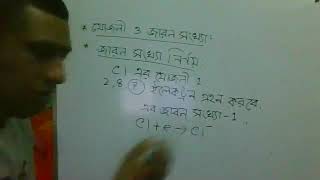 * যোজনী ও জারন সংখ্যা:
* জারন সংখ্যা নির্নয়
Cl এর যোজনী 1
2, 8, 7 ইলেকট্রন গ্রহন করবে
এর জারন সংখ্যা -1
Cl + e → Cl⁻